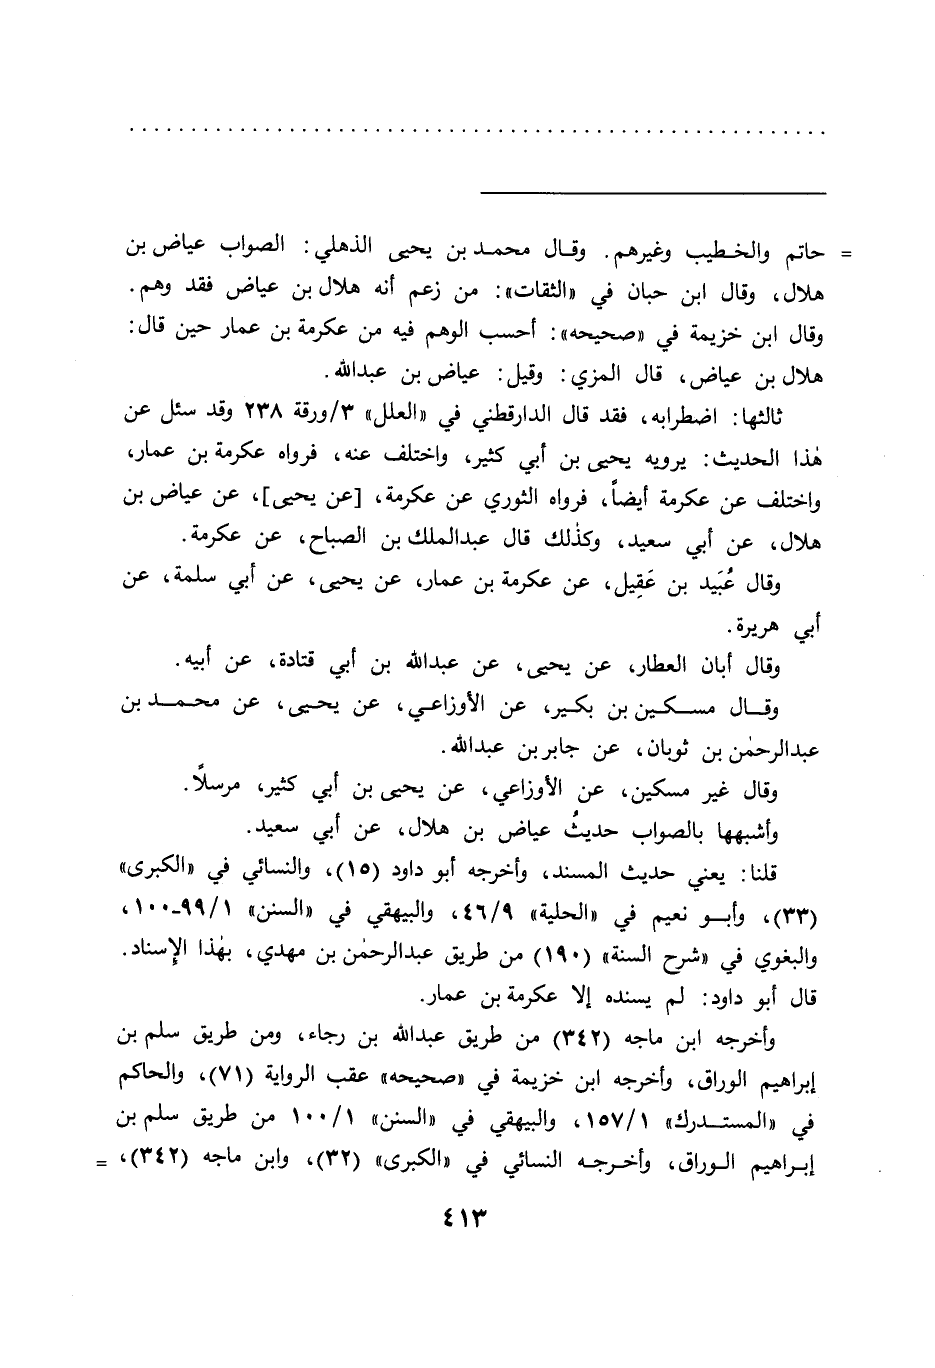 = حاتم والخطيب وغيرهم. وقال محمد بن يحيى الذهلي: الصواب عياض بن
هلال، وقال ابن حبان في «الثقات»: من زعم أنه هلال بن عياض فقد وهم.
وقال ابن خزيمة في «صحيحه»: أحسب الوهم فيه من عكرمة بن عمار حين قال:
هلال بن عياض، قال المزي: وقيل: عياض بن عبدالله.
ثالثها: اضطرابه، فقد قال الدارقطني في «العلل» ٣/ورقة ٢٣٨ وقد سئل عن
هٰذا الحديث: يرويه يحيى بن أبي كثير، واختلف عنه، فرواه عكرمة بن عمار،
واختلف عن عكرمة أيضاً، فرواه الثوري عن عكرمة، [عن يحيى]، عن عياض بن
هلال، عن أبي سعيد، وكذٰلك قال عبدالملك بن الصباح، عن عكرمة.
وقال عُبَيد بن عَقِيل، عن عكرمة بن عمار، عن يحيى، عن أبي سلمة، عن
أبي هريرة.
وقال أبان العطار، عن يحيى، عن عبدالله بن أبي قتادة، عن أبيه.
وقال مسكين بن بكير، عن الأوزاعي، عن يحيى، عن محمد بن
عبدالرحمٰن بن ثوبان، عن جابر بن عبدالله.
وقال غير مسكين، عن الأوزاعي، عن يحيى بن أبي كثير، مرسلاً.
وأشبهها بالصواب حديثُ عياض بن هلال، عن أبي سعيد.
قلنا: يعني حديث المسند، وأخرجه أبو داود (١٥)، والنسائي في «الكبرى»
(٣٣)، وأبو نعيم في «الحلية» ٤٦/٩، والبيهقي في «السنن» ٩٩/١-١٠٠،
والبغوي في «شرح السنة» (١٩٠) من طريق عبدالرحمٰن بن مهدي، بهٰذا الإسناد.
قال أبو داود: لم يسنده إلا عكرمة بن عمار.
وأخرجه ابن ماجه (٣٤٢) من طريق عبدالله بن رجاء، ومن طريق سلم بن
إبراهيم الوراق، وأخرجه ابن خزيمة في «صحيحه» عقب الرواية (٧١)، والحاكم
في «المستدرك» ١٥٧/١، والبيهقي في «السنن» ١٠٠/١ من طريق سلم بن
إبراهيم الوراق، وأخرجه النسائي في «الكبرى» (٣٢)، وابن ماجه (٣٤٢)، =
٤١٣